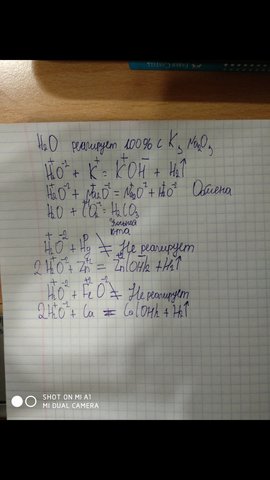 H₂O реагирует 100% с K, Na₂O,
H₂⁺O⁻² + K⁺ = K⁺OH⁻ + H₂↑
H₂⁺O⁻² + Na₂⁺O⁻² = Na₂O⁻² + H₂⁺O⁻² Обмена
H₂O + CO₂⁻² = H₂CO₃
к-та
H₂⁺O⁻² + Hg = Не реагирует
2H₂⁺O⁻² + Zn⁺² = Zn(OH)₂ + H₂↑
H₂⁺O⁻² + Fe⁺²O⁻² = Не реагирует
2H₂⁺O⁻² + Ca = Ca(OH)₂ + H₂↑
SHOT ON MI A1
MI DUAL CAMERA